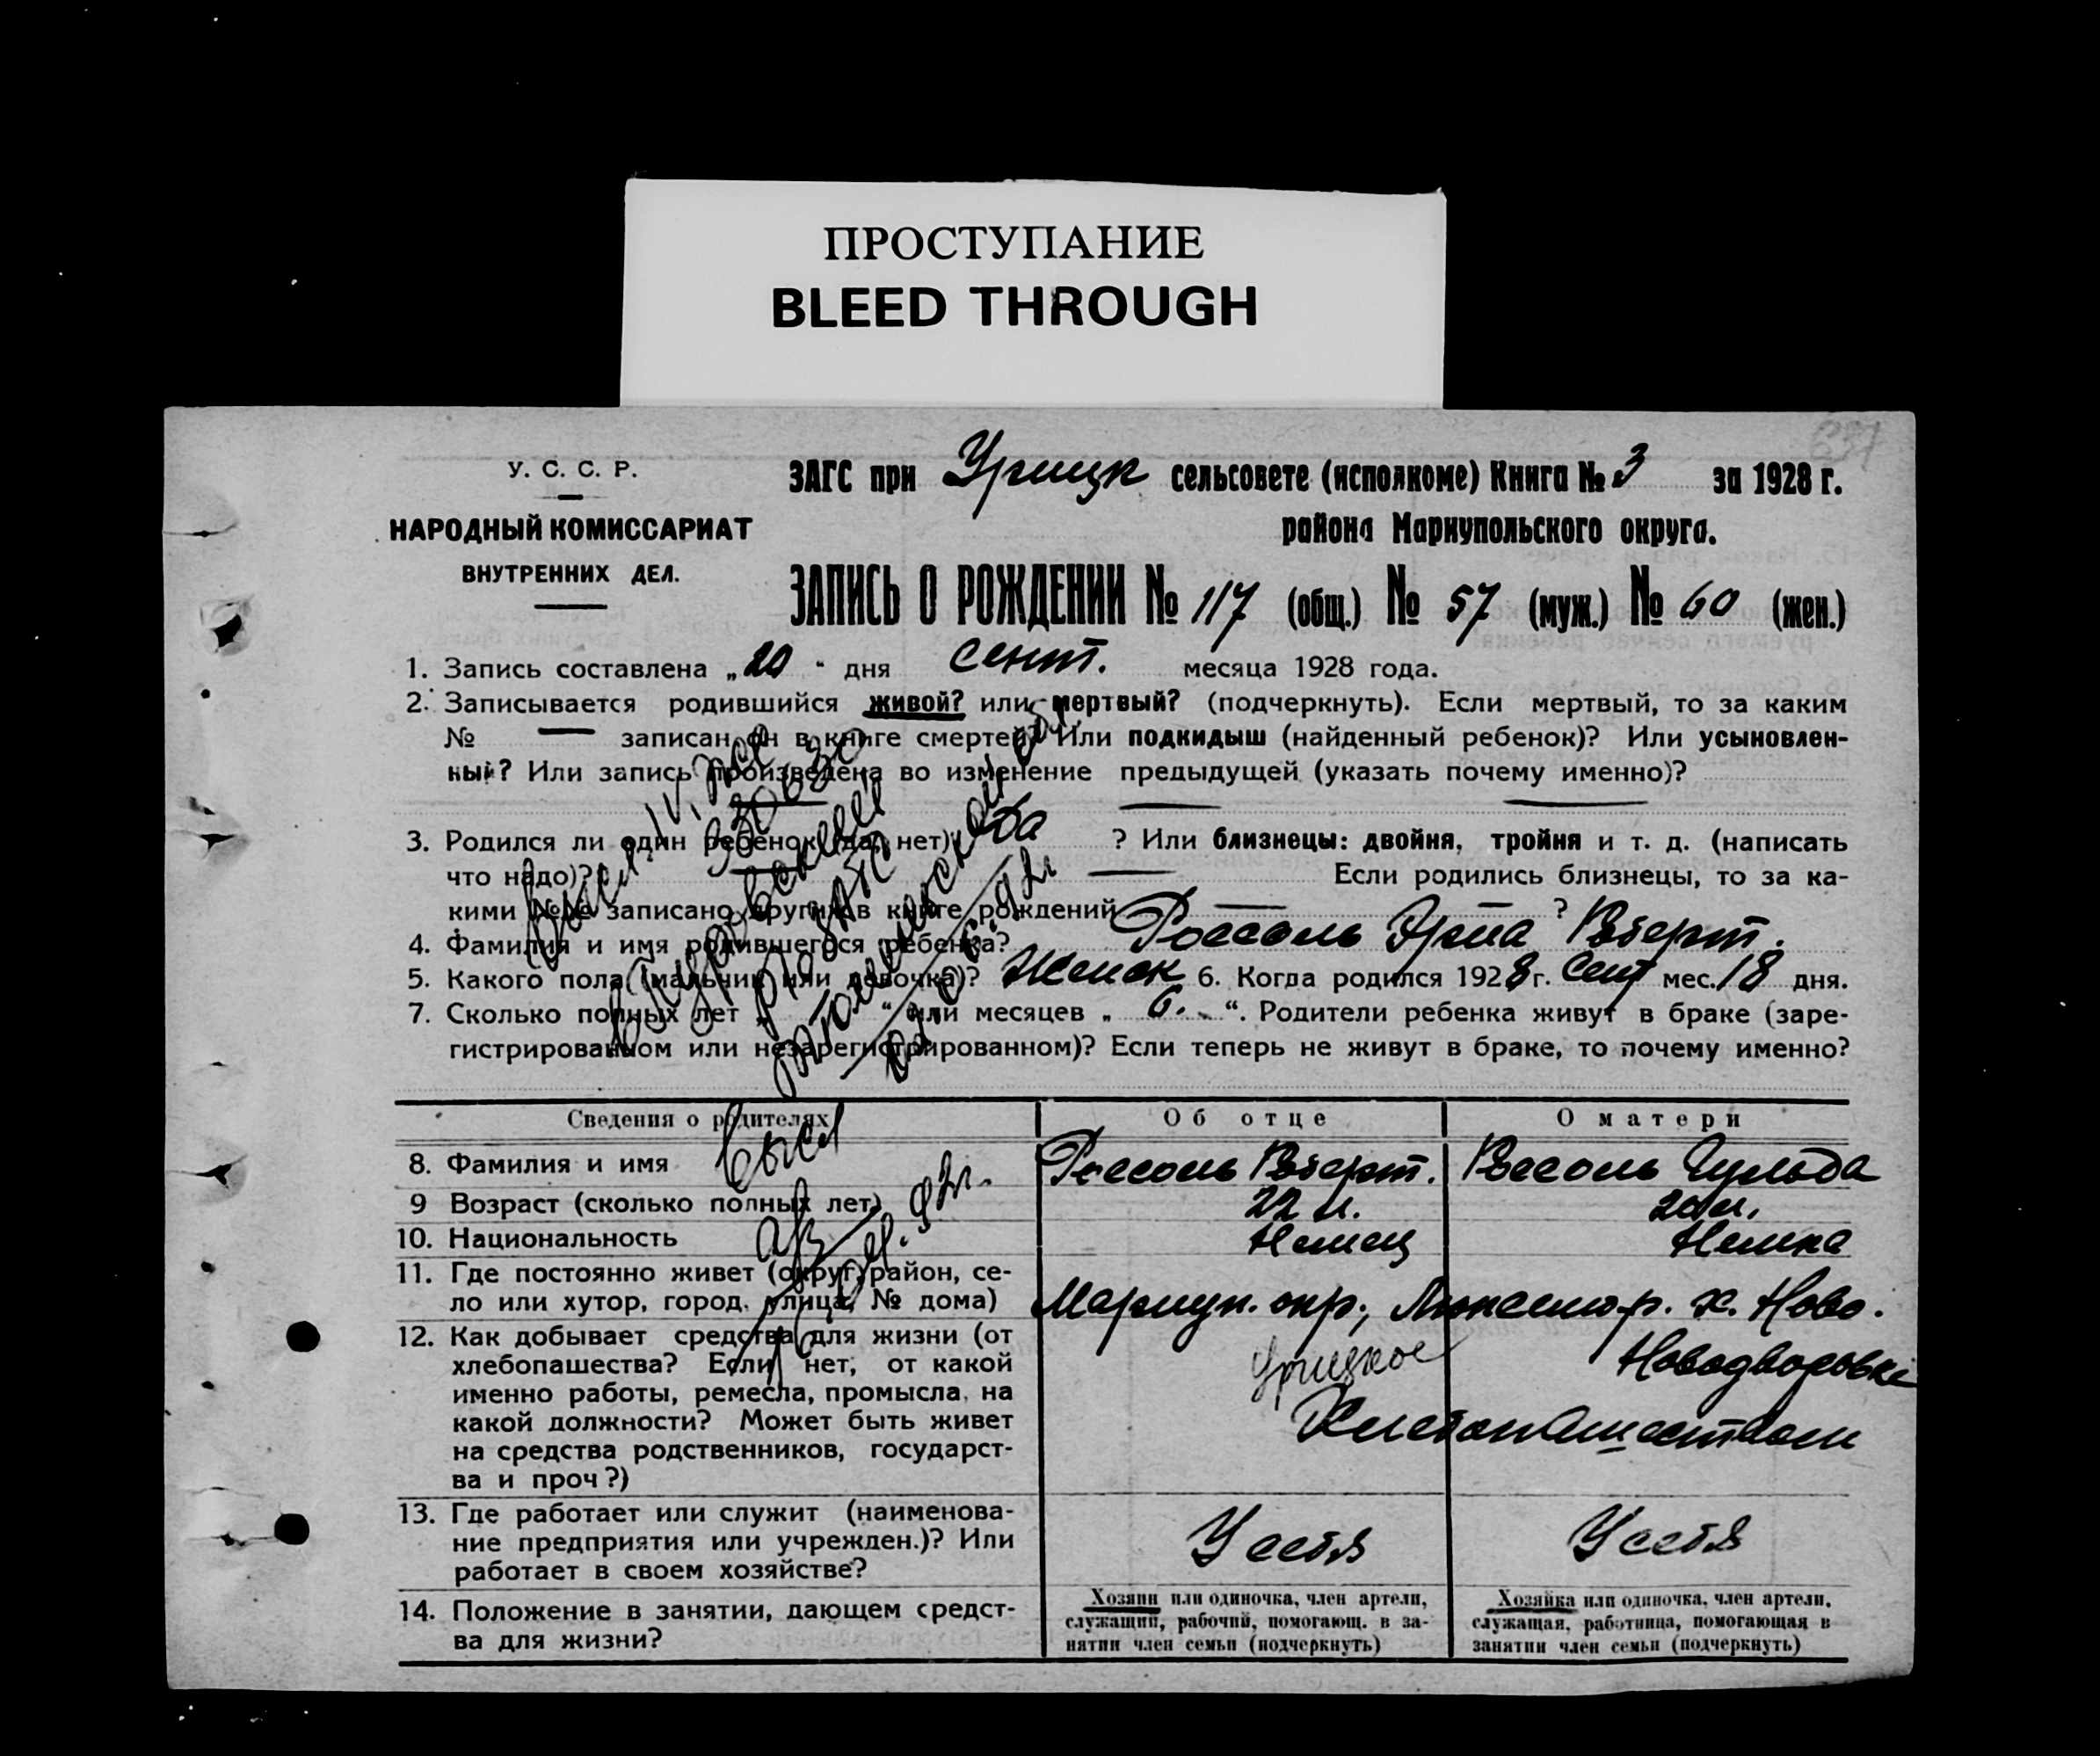 ПРОСТУПАНИЕ
BLEED THROUGH
637
У. С. С. Р.
НАРОДНЫЙ КОМИССАРИАТ
ВНУТРЕННИХ ДЕЛ.
ЗАГС при Урицк сельсовете (исполкоме) Книга № 3 за 1928 г.
района Мариупольского округа.
ЗАПИСЬ О РОЖДЕНИИ № 117 (общ.) № 57 (муж.) № 60 (жен.)
1. Запись составлена „20“ дня сент. месяца 1928 года.
2. Записывается родившийся живой? или мертвый? (подчеркнуть). Если мертвый, то за каким
№ — записан он в книге смертей? Или подкидыш (найденный ребенок)? Или усыновлен-
ный? Или запись произведена во изменение предыдущей (указать почему именно)?
3. Родился ли один ребенок (да, нет) да ? Или близнецы: двойня, тройня и т. д. (написать
что надо)? — Если родились близнецы, то за ка-
кими №№ записано другие в книге рождений — ?
4. Фамилия и имя родившегося ребенка? Россоль Эрна Роберт.
5. Какого пола (мальчик или девочка)? Женск 6. Когда родился 1928 г. Сент мес. 18 дня.
7. Сколько полных лет „ “ или месяцев „ 6. “. Родители ребенка живут в браке (заре-
гистрированном или незарегистрированном)? Если теперь не живут в браке, то почему именно?
Сведения о родителях
Об отце
О матери
8. Фамилия и имя Россоль Роберт. Россоль Гульда
9 Возраст (сколько полных лет) 22 л. 20 л.
10. Национальность Немец Немка
11. Где постоянно живет (округ, район, се-
ло или хутор, город, улица, № дома) Мариуп. окр., х. Ново.
Урицкое Новодворовка
12. Как добывает средства для жизни (от
хлебопашества? Если нет, от какой
именно работы, ремесла, промысла, на
какой должности? Может быть живет
на средства родственников, государст-
ва и проч?)
Хлебопашеством
13. Где работает или служит (наименова-
ние предприятия или учрежден.)? Или
работает в своем хозяйстве?
У себя У себя
14. Положение в занятии, дающем средст-
ва для жизни?
Хозяин или одиночка, член артели,
служащий, рабочий, помогающ. в за-
нятии член семьи (подчеркнуть)
Хозяйка или одиночка, член артели,
служащая, работница, помогающая в
занятии член семьи (подчеркнуть)